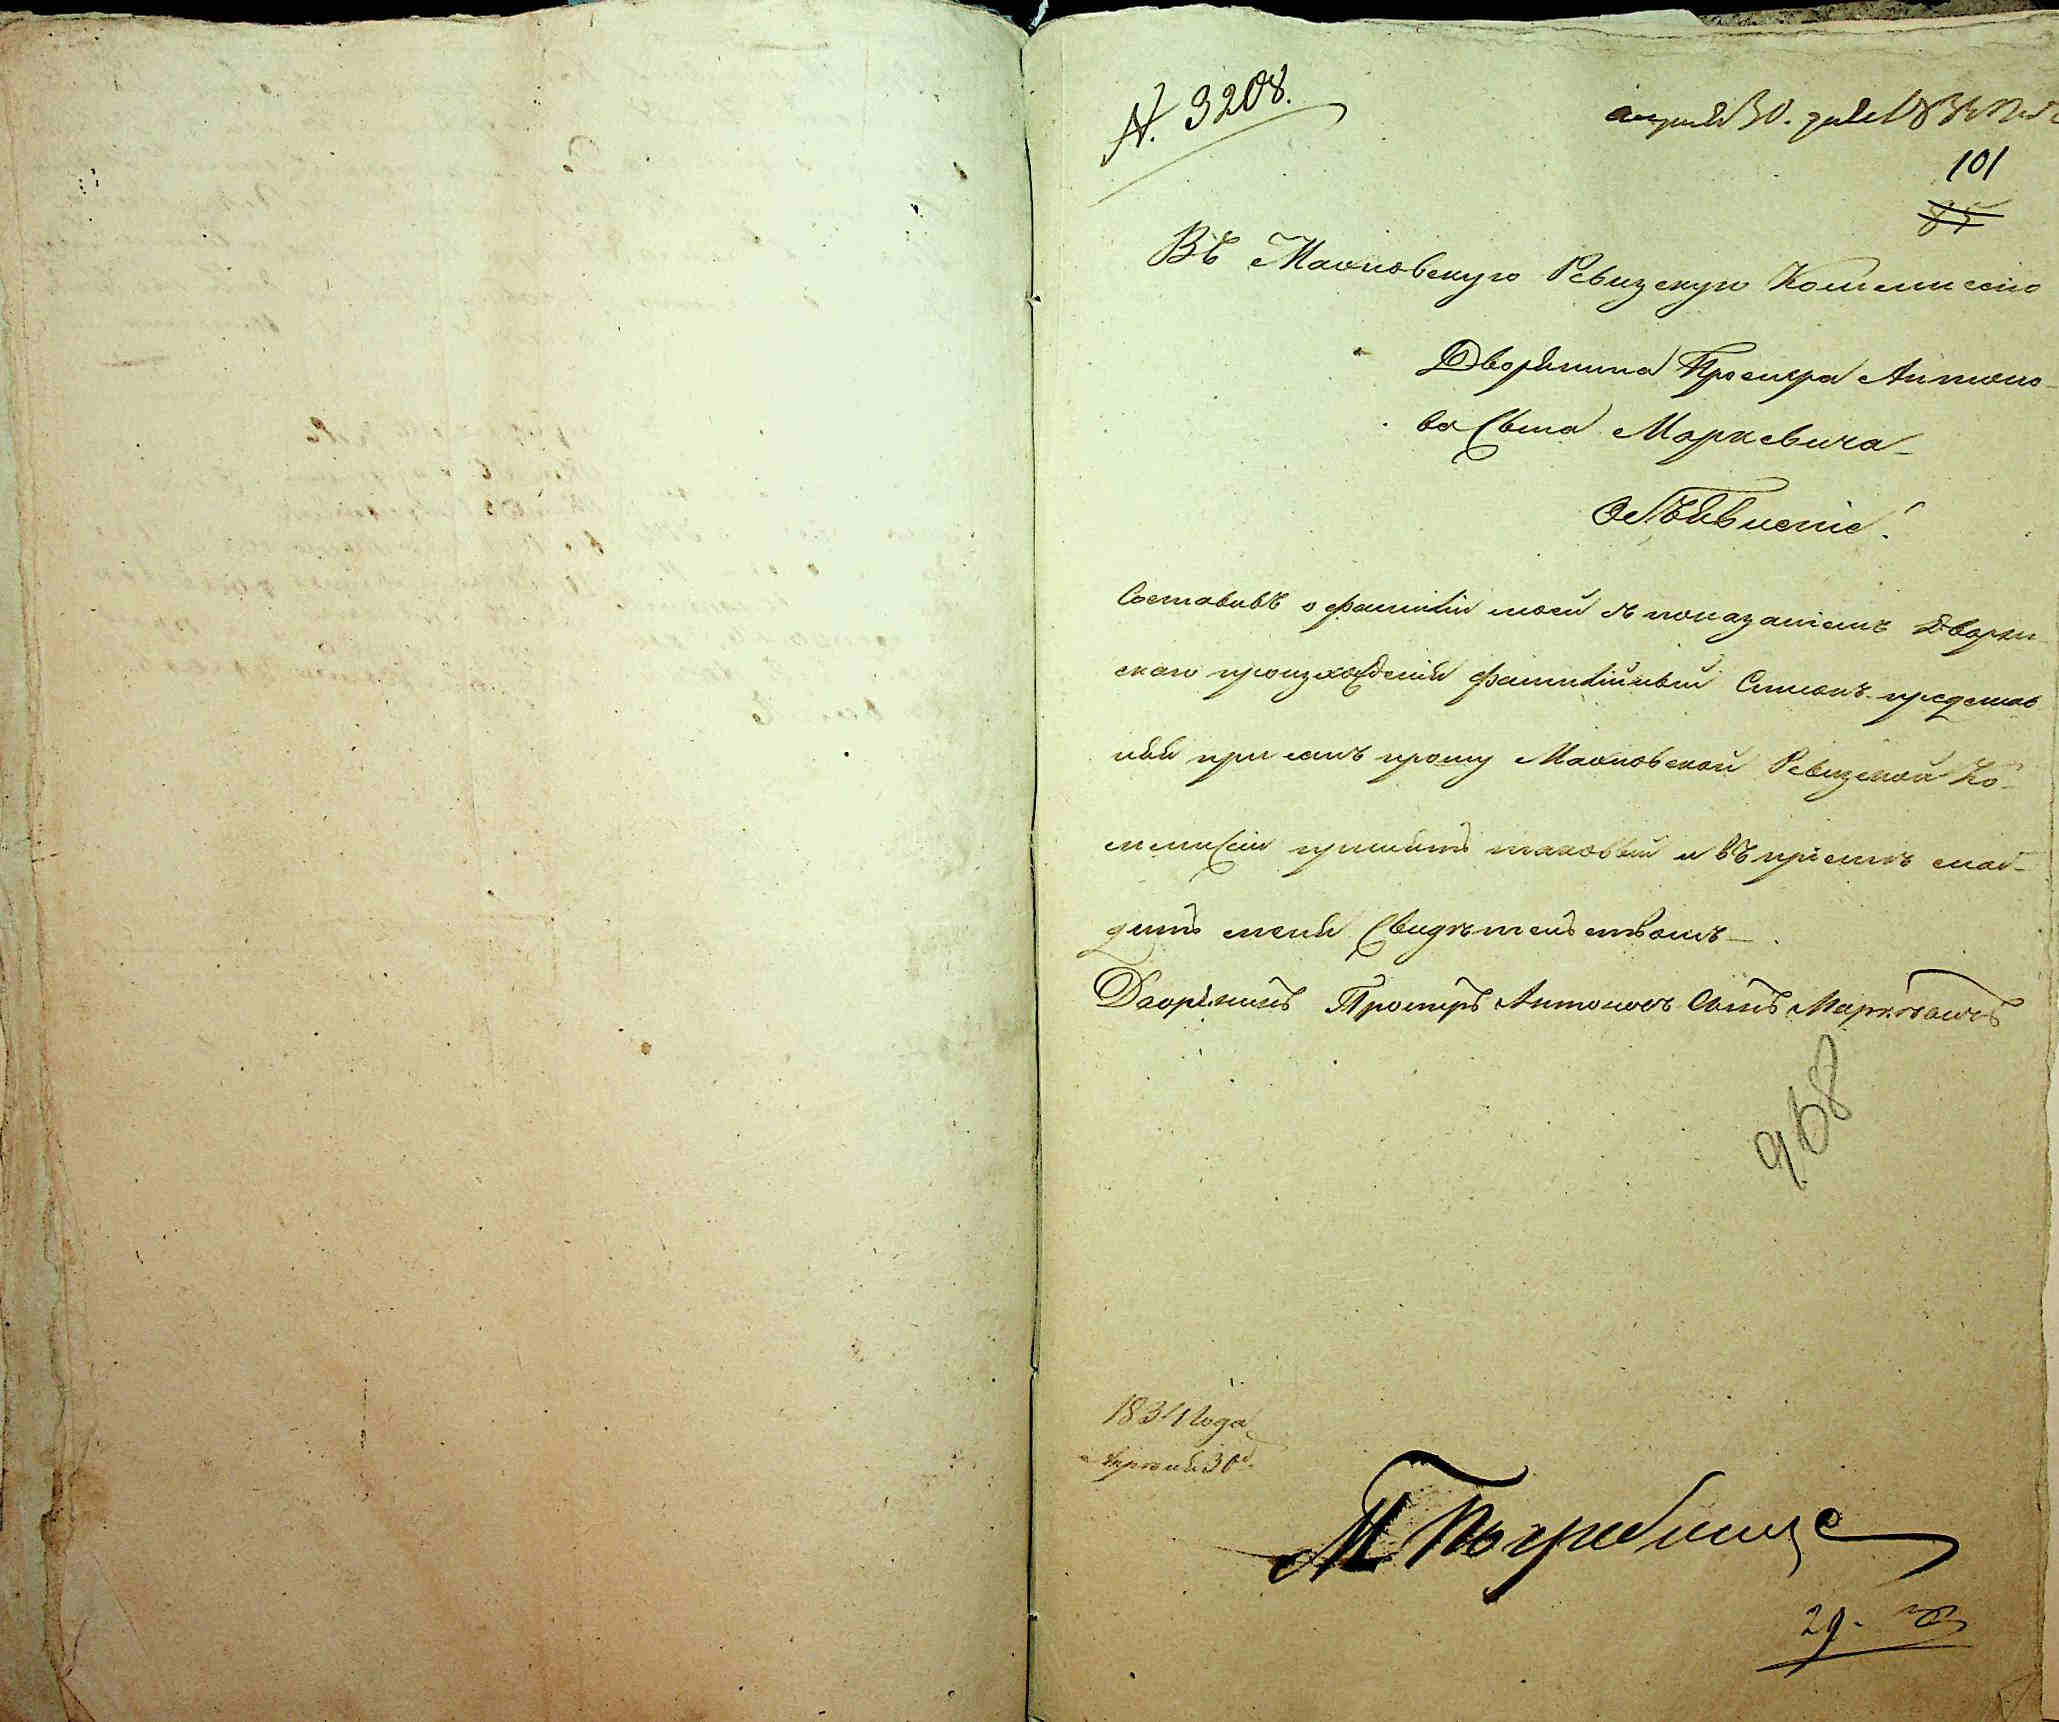 N. 3208.
апреля 30. дня 1834 года
101
85
Въ Махновскую Ревизскую Коммиссію
Дворянина Проспера Антоно-
ва Сына Маркевича
Объявленіе!
Составивъ о фамиліи моей съ показаніемъ Дворян
скаго произхожденія фамилійный Списокъ представ
ляя при семъ прошу Махновской Ревизской Ко-
ммиссіи принять таковый и въ пріемѣ снаб-
дить меня Свидѣтельствомъ
Дворянинъ Просперъ Антоновъ Сынъ Маркевичъ
968
1834 года
Апреля 30 д.
М Погребище